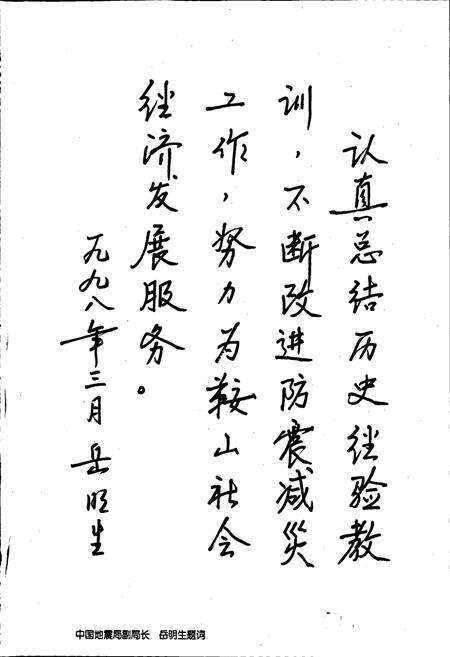 认真总结历史经验教
训，不断改进防震减灾
工作，努力为鞍山社会
经济发展服务。
一九九八年三月 岳明生
中国地震局副局长 岳明生题词